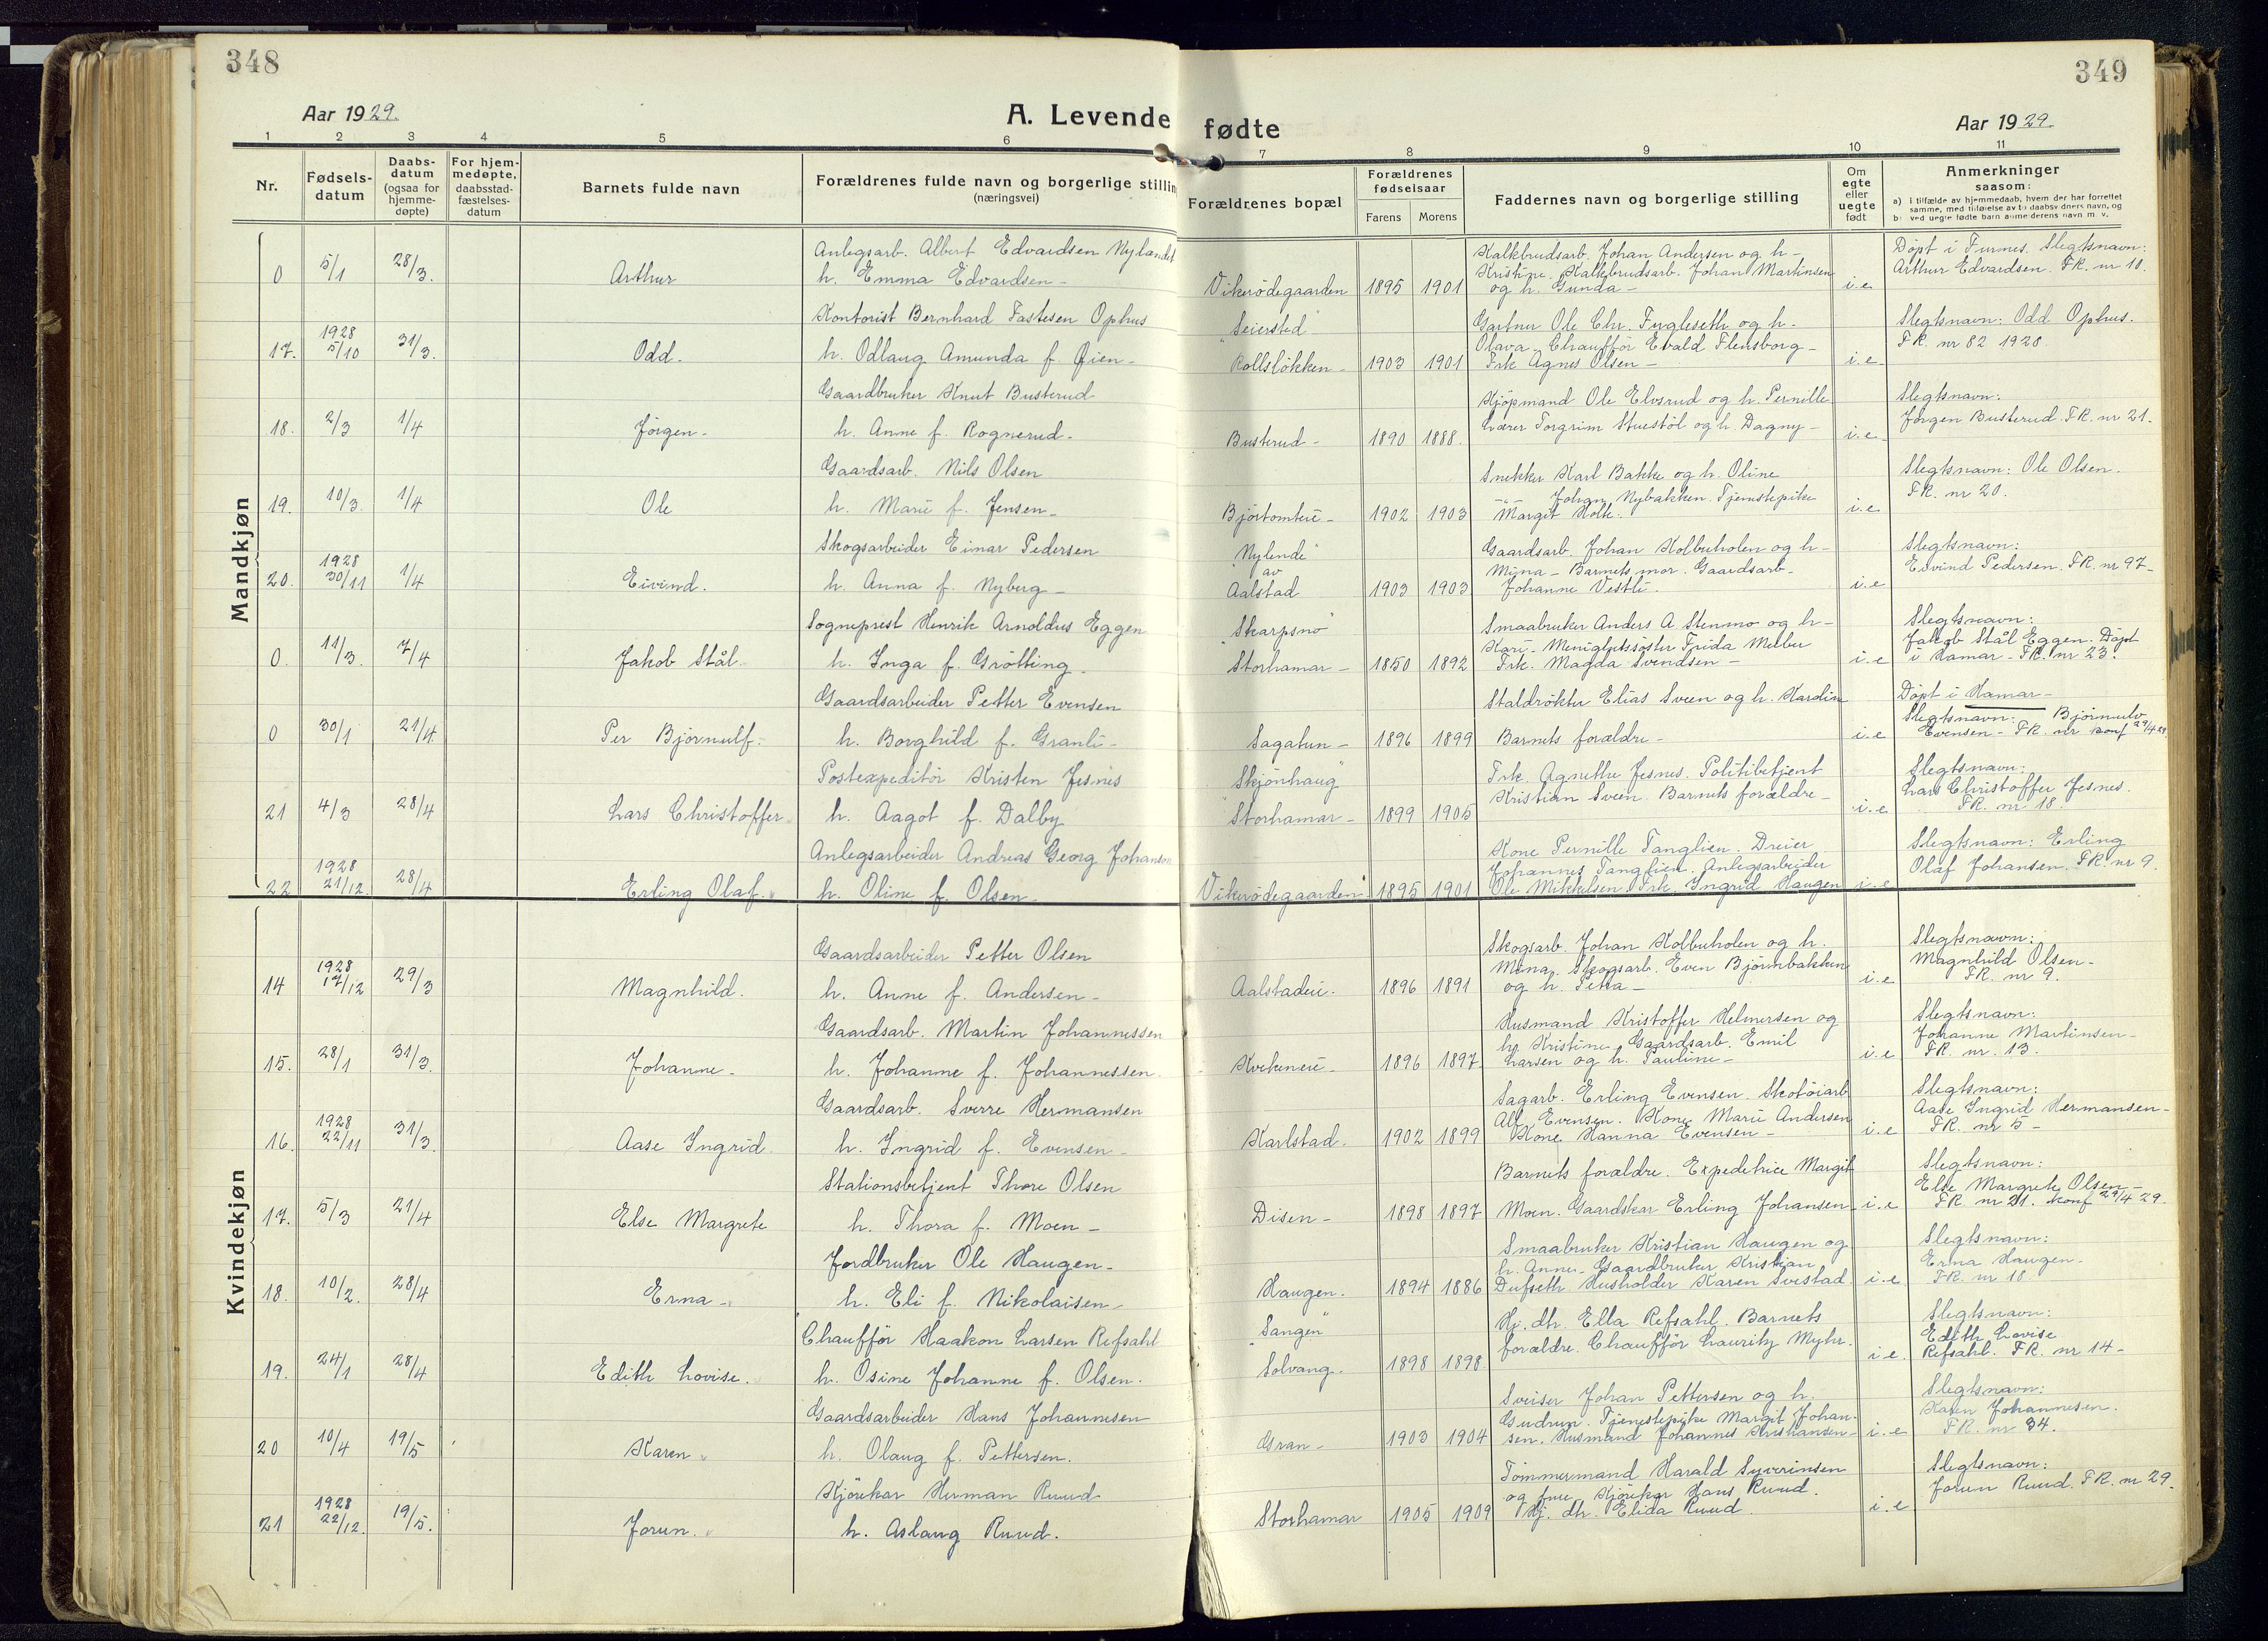 348
349
Aar 1929.
A. Levende fødte
Aar 1929.
1 2 3 4 5 6 7 8 9 10 11
Nr.
Fødsels-
datum
Daabs-
datum
(ogsaa for
hjemme-
døpte)
For hjem-
medøpte,
daabsstad-
fæstelses-
datum
Barnets fulde navn
Forældrenes fulde navn og borgerlige stillin
(næringsvei)
Forældrenes bopæl
Forældrenes
fødselsaar
Farens Morens
Faddernes navn og borgerlige stilling
Om
egte
eller
uegte
født
Anmerkninger
saasom:
a) i tilfælde av hjemmedaab, hvem der har forrettet
samme, med tilføielse av to daabsvidners navn, og
b) ved uegte fødte barn anmelderens navn m. v.
Mandkjøn
0 5/1 28/3. Arthur
Anlegsarb. Albert Edvardsen Nylandst
h. Emma Edvardsen -
Vikerödegaarden 1895 1901
Kalkbrudsarb. Johan Andersen og h -
Kristine. Kalkbrudsarb. Johan Martinsen
og h. Gunda -
i.e
Döpt i Furnes. Slegtsnavn:
Arthur Edvardsen. FR. nr 10.
17. 1928 5/10 31/3. Odd.
Kontorist Bernhard Fastesen Ophus
h. Odlaug Amunda f. Öien -
"Seiersted"
Rollslökken - 1903 1901
Gartner Ole Chr. Fugleseth og h.
Olava - Chaufför Evald Flensborg -
Frk Agnes Olsen -
i.e
Slegtsnavn: Odd Ophus.
FR. nr 82 1928.
18. 2/3 1/4 Jörgen -
Gaardbruker Knut Busterud
h. Anne f. Rognerud.
Busterud - 1890 1888.
Kjöpmand Ole Elvsrud og h. Pernille
Lærer Torgrim Stuestöl og h. Dagny -
i.e
Slegtsnavn:
Jörgen Busterud. FR. nr 21.
19. 10/3. 1/4 Ole
Gaardsarb. Nils Olsen
h. Marie f. Jensen -
Björtomteie - 1902 1903
Snekker Karl Bakke og h. Oline
-"- Johan Nybakken. Tjenestepike
Margit Holte.
i.e
Slegtsnavn: Ole Olsen.
FR. nr 20.
20. 1928 30/11 1/4 Eivind.
Skogsarbeider Einar Pedersen
h. Anna f. Nyberg -
"Nylende"
av
Aalstad 1903 1903
Gaardsarb. Johan Kolbuholen og h -
Mina - Barnets mor. Gaardsarb -
Johanne Vestli.
i.e
Slegtsnavn:
Eivind Pedersen. FR. nr 97 -
0. 11/3. 7/4 Jakob Stål.
Sogneprest Henrik Arnoldus Eggen
h. Inga f. Grötting
"Skarpsno"
Storhamar - 1850 1892
Smaabruker Anders A. Stenmo og h -
Kari - Menighetssöster Frida Melbu
Frk. Magda Svendsen -
i.e
Slegtsnavn:
Jakob Stål Eggen. Döpt
i Hamar - FR. nr 23.
0 30/1 21/4 Per Björnulf.
Gaardsarbeider Petter Evensen
h. Borghild f. Granli -
Sagatun - 1896 1899
Staldrökter Elias Sveen og h. Kardine
Barnets forældre -
i.e
Döpt i Hamar -
Slegtsnavn: Björnulv
Evensen - FR. nr konf 29/4 29
21 4/3 28/4 Lars Christoffer
Postexpeditör Kristen Jesnes
h. Aagot f. Dalby
"Skjönhaug"
Storhamar - 1899 1905
Frk. Agnethe Jesnes. Politibetjent
Kristian Sveen. Barnets forældre -
i.e
Slegtsnavn:
Lars Christoffer Jesnes.
FR. nr 18.
22 1928 21/12. 28/4 Erling Olaf.
Anlegsarbeider Andreas Georg Johansen
h. Oline f. Olsen -
Vikerödegaarden 1895 1901
Kone Pernille Tanglien. Dreier
Johannes Tanglien. Anlegsarbeider
Ole Mikkelsen. Frk. Ingrid Haugen
i.e
Slegtsnavn: Erling
Olaf Johansen. FR. nr 9.
Kvindekjøn
14 1928 17/12 29/3 Magnhild.
Gaardsarbeider Petter Olsen
h. Anne f. Andersen -
Aalstadeie. 1896 1891
Skogsarb. Johan Kolbuholen og h.
Mina. Skogsarb. Even Björnbakken
og h. Petra -
i.e
Slegtsnavn:
Magnhild Olsen -
FR. nr 9.
15. 28/1 31/3. Johanne -
Gaardsarb. Martin Johannessen
h. Johanne f. Johannessen
Kvekeneie - 1896 1897
Husmand Kristoffer Helmersen og
h. Kristine. Gaardsarb. Emil
Larsen og h. Pauline -
i.e
Slegtsnavn:
Johanne Martinsen -
FR. nr. 13.
16. 1928 22/11 31/3. Aase Ingrid
Gaardsarb. Sverre Hermansen
h. Ingrid f. Evensen -
Karlstad. 1902 1899
Sagarb. Erling Evensen. Skotöiarb
Alf Evensen. Kone Marie Andersen
Kone Hanna Evensen -
i.e
Slegtsnavn:
Aase Ingrid Hermansen -
FR. nr 5 -
17. 5/3 21/4 Else Margrete
Stationsbetjent Thore Olsen
h. Thora f. Moen -
Disen - 1898 1897
Barnets forældre. Expeditrice Margit
Moen. Gaardskar Erling Johansen
i.e
Slegtsnavn:
Else Margrete Olsen -
FR nr 21. konf 29/4 29.
18. 10/2. 28/4 Erna -
Jordbruker Ole Haugen -
h. Eli f. Nikolaisen -
Haugen. 1894 1886
Smaabruker Kristian Haugen og
h. Anne - Gaardbruker Kristian
Dufseth. Husholder Karen Svestad.
i.e
Slegtsnavn:
Erna Haugen -
FR. nr 18
19. 24/1 28/4 Edith Lovise.
Chaufför Haakon Larsen Refsahl
h. Osine Johanne f. Olsen.
"Sangen"
Solvang. 1898 1898.
Hj. dtr. Ella Refsahl. Barnets
forældre. Chaufför Lauritz Myhr.
i.e.
Slegtsnavn:
Edith Lovise
Refsahl. FR. nr 14 -
20 10/4 19/5 Karen
Gaardsarbeider Hans Johannesen
h. Olaug f. Pettersen.
Gran - 1903 1904
Sveiser Johan Pettersen og h.
Gudrun. Tjenestepike Margit Johan-
sen. Husmand Johannes Kristiansen -
i.e
Slegtsnavn:
Karen Johannesen.
FR. nr 34.
21 1928 22/12. 19/5. Jorun.
Kjörekar Herman Ruud
h. Aslaug Ruud.
Storhamar 1905 1909
Tömmermand Harald Syverinsen
og frue. Kjörekar Hans Ruud.
Hj. dtr. Elida Ruud.
i.e
Slegtsnavn:
Jorun Ruud. FR. nr 29.